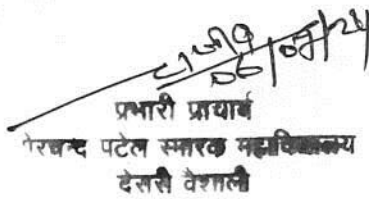 06/07/21
प्रभारी प्राचार्य
पटेल स्मारक महाविद्यालय
देसरी वैशाली